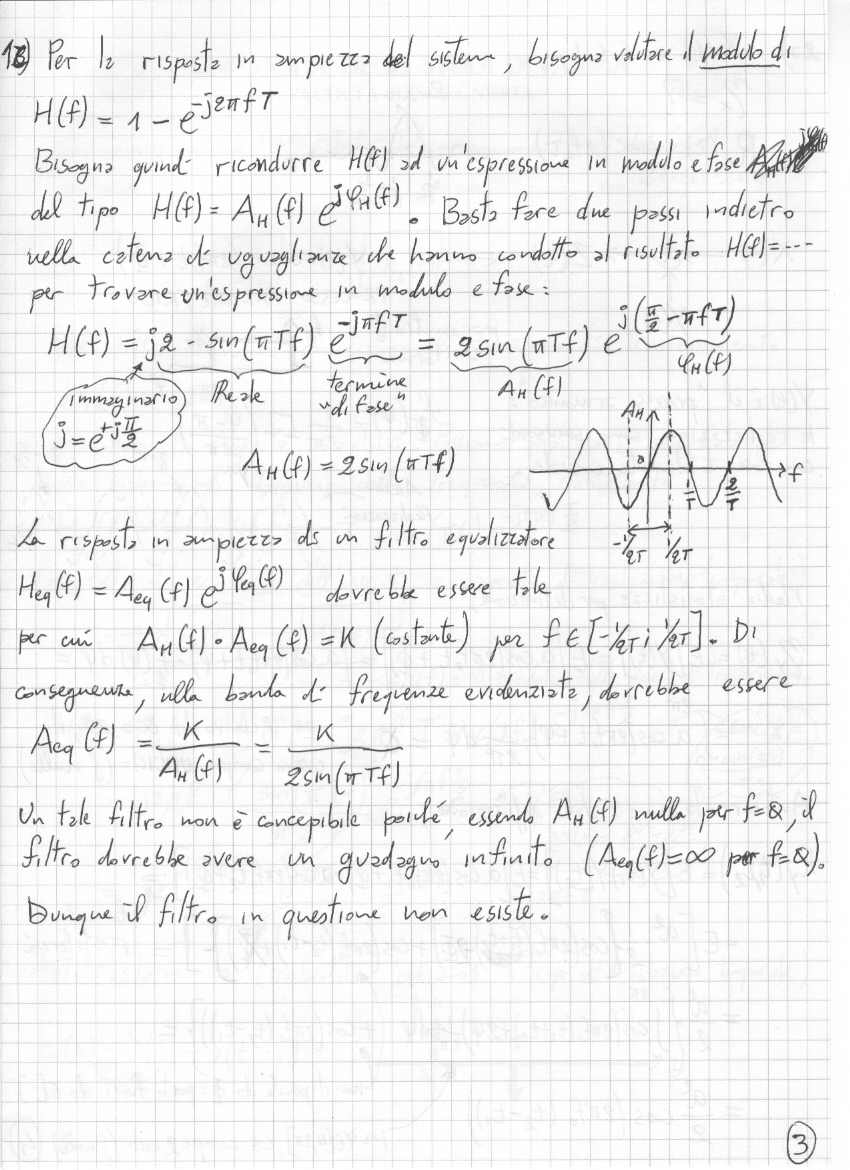 1B) Per la risposta in ampiezza del sistema, bisogna valutare il modulo di
H(f) = 1 - e^{-j2πfT}
Bisogna quindi ricondurre H(f) ad un'espressione in modulo e fase
del tipo H(f) = A_H(f) e^{jφ_H(f)}. Basta fare due passi indietro
nella catena di uguaglianze che hanno condotto al risultato H(f)=---
per trovare un'espressione in modulo e fase:
H(f) = j2 - sin(πTf) e^{-jπfT} = 2sin(πTf) e^{j(π/2 - πfT)}
immaginario
j = e^{+jπ/2}
Reale
termine
"di fase"
A_H(f)
φ_H(f)
A_H(f) = 2sin(πTf)
A_H
0
1/T
2/T
f
-1/2T
1/2T
La risposta in ampiezza di un filtro equalizzatore
H_eq(f) = A_eq(f) e^{jφ_eq(f)} dovrebbe essere tale
per cui A_H(f) · A_eq(f) = K (costante) per f ∈ [-1/2T ; 1/2T]. Di
conseguenza, nella banda di frequenze evidenziata, dovrebbe essere
A_eq(f) = K / A_H(f) = K / 2sin(πTf)
Un tale filtro non è concepibile poiché, essendo A_H(f) nulla per f=0, il
filtro dovrebbe avere un guadagno infinito (A_eq(f)=∞ per f=0).
Dunque il filtro in questione non esiste.
3